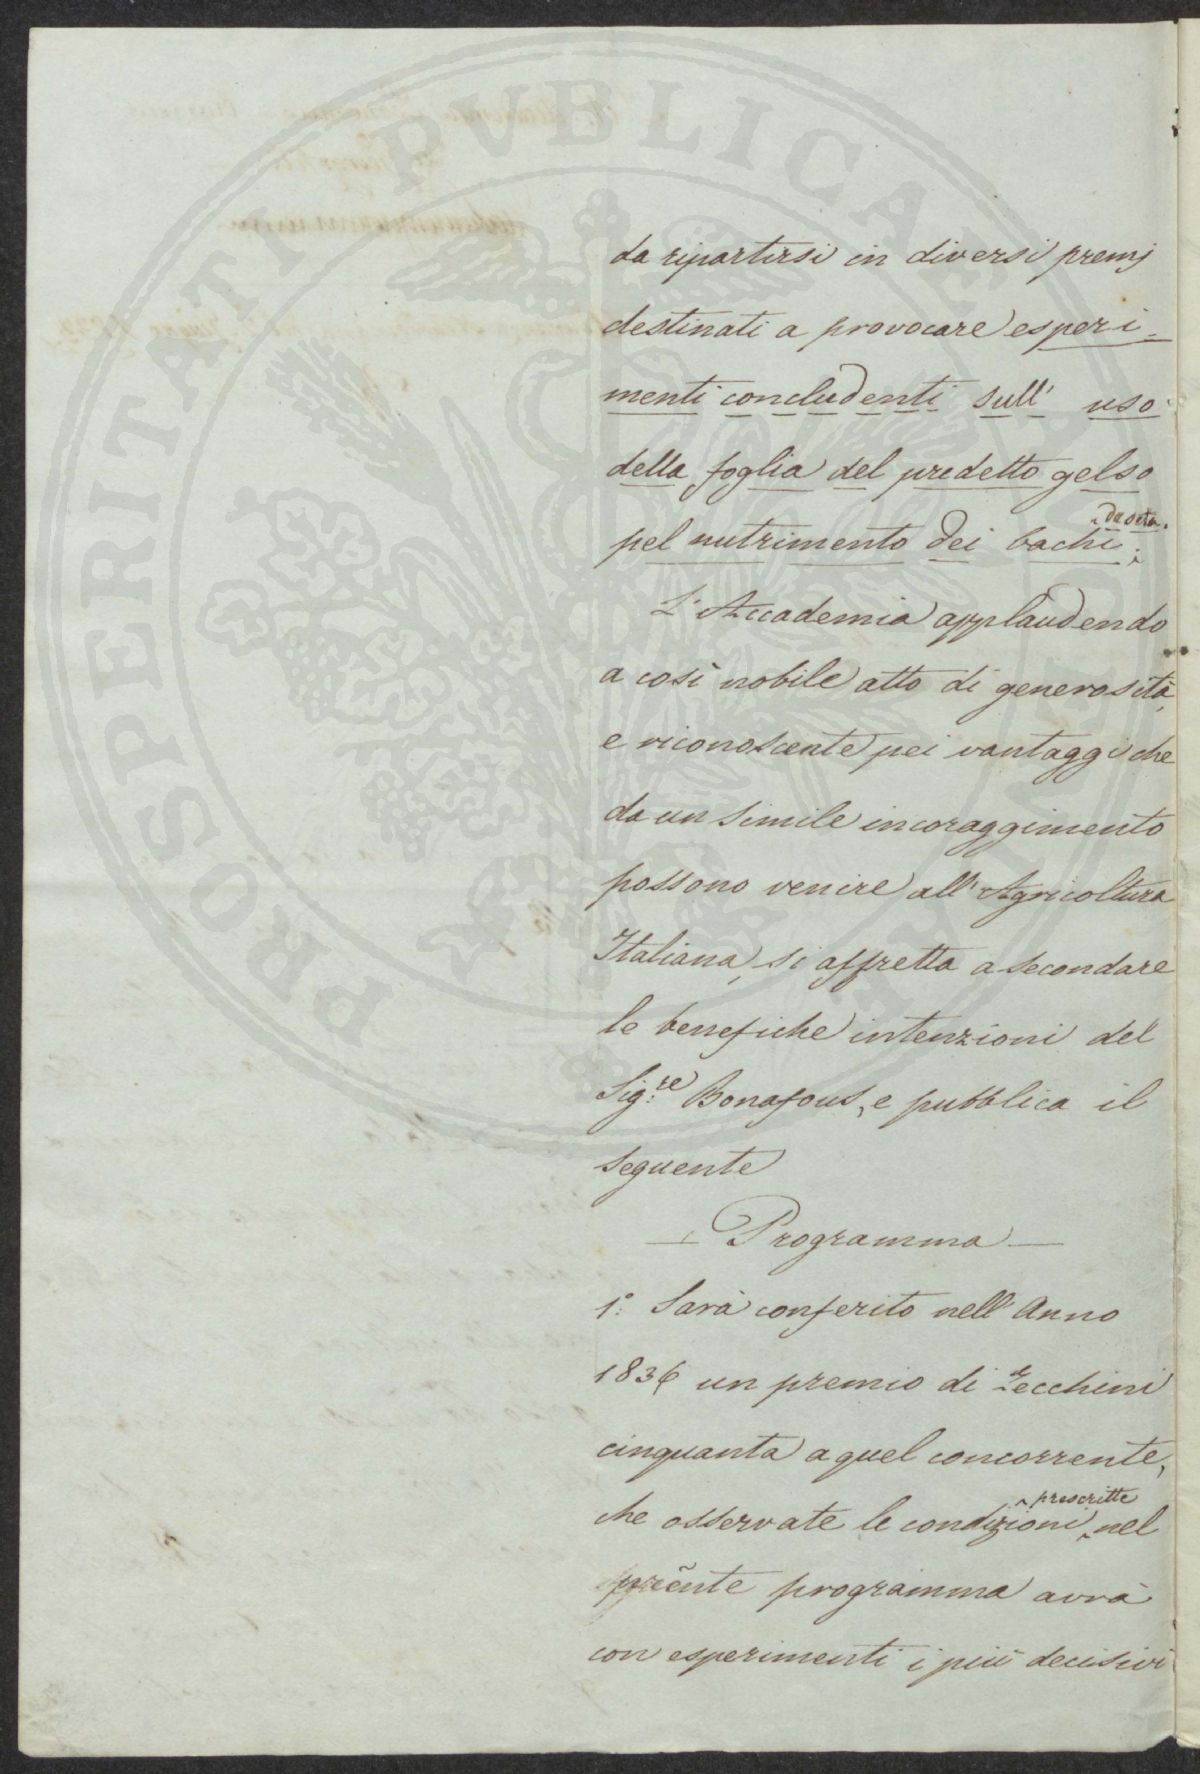 PROSPERITATI PUBLICAE AUGENDAE
da ripartirsi in diversi premj
destinati a provocare esperi-
menti concludenti sull' uso
della foglia del predetto gelso
da seta.
pel nutrimento dei bachi;
L'Accademia applaudendo
a così nobile atto di generosità,
e riconoscente pei vantaggi che
da un simile incoraggimento
possono venire all'Agricoltura
Italiana, si affretta a secondare
le benefiche intenzioni del
Sig.re Bonafous, e pubblica il
seguente
Programma
1.° Sarà conferito nell'Anno
1836 un premio di Zecchini
cinquanta a quel concorrente,
prescritte
che osservate le condizioni nel
preñte programma avrà
con esperimenti i più decisivi